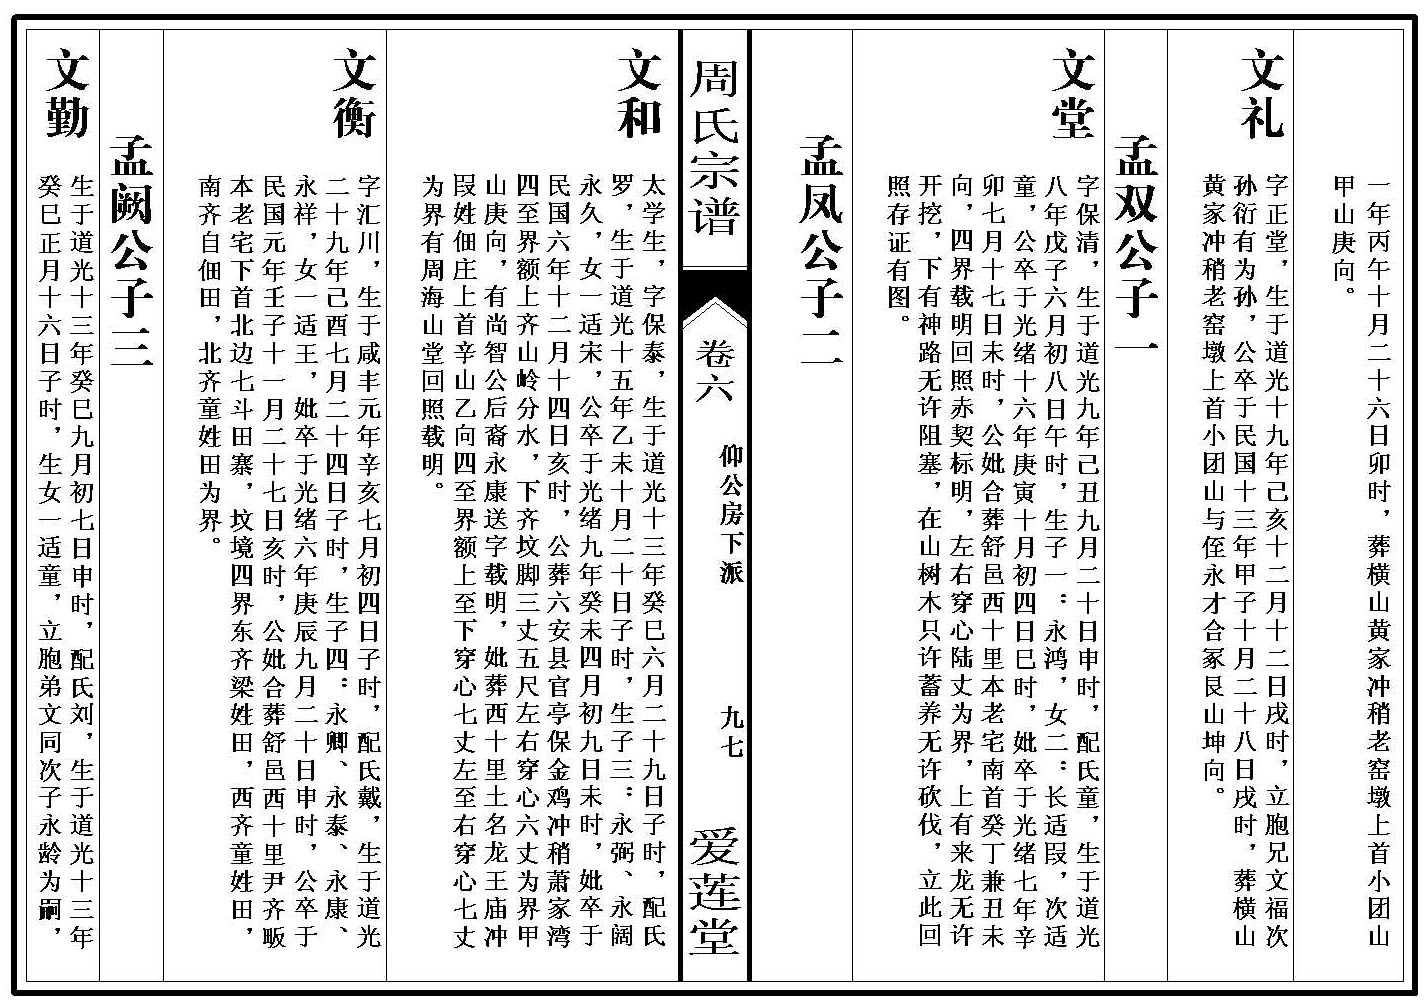 一年丙午十月二十六日卯时，葬横山黄家冲稍老窑墩上首小团山
甲山庚向。
文礼
字正堂，生于道光十九年己亥十二月十二日戌时，立胞兄文福次
孙衍有为孙，公卒于民国十三年甲子十月二十八日戌时，葬横山
黄家冲稍老窑墩上首小团山与侄永才合冢艮山坤向。
孟双公子一
文堂
字保清，生于道光九年己丑九月二十日申时，配氏童，生于道光
八年戊子六月初八日午时，生子一：永鸿，女二：长适叚，次适
童，公卒于光绪十六年庚寅十月初四日巳时，妣卒于光绪七年辛
卯七月十七日未时，公妣合葬舒邑西十里本老宅南首癸丁兼丑未
向，四界载明回照赤契标明，左右穿心陆丈为界，上有来龙无许
开挖，下有神路无许阻塞，在山树木只许蓄养无许砍伐，立此回
照存证有图。
孟凤公子二
周氏宗谱
卷六
仰公房下派
九七
爱莲堂
文和
太学生，字保泰，生于道光十三年癸巳六月二十九日子时，配氏
罗，生于道光十五年乙未十月二十日子时，生子三：永弼、永阔
永久，女一适宋，公卒于光绪九年癸未四月初九日未时，妣卒于
民国六年十二月十四日亥时，公葬六安县官亭保金鸡冲稍萧家湾
四至界额上齐山岭分水，下齐坟脚三丈五尺左右穿心六丈为界甲
山庚向，有尚智公后裔永康送字载明，妣葬西十里土名龙王庙冲
叚姓佃庄上首辛山乙向四至界额上至下穿心七丈左至右穿心七丈
为界有周海山堂回照载明。
文衡
字汇川，生于咸丰元年辛亥七月初四日子时，配氏戴，生于道光
二十九年己酉七月二十四日子时，生子四：永卿、永泰、永康、
永祥，女一适王，妣卒于光绪六年庚辰九月二十日申时，公卒于
民国元年壬子十一月二十七日亥时，公妣合葬舒邑西十里尹齐畈
本老宅下首北边七斗田寨，坟境四界东齐梁姓田，西齐童姓田，
南齐自佃田，北齐童姓田为界。
孟阙公子三
文勤
生于道光十三年癸巳九月初七日申时，配氏刘，生于道光十三年
癸巳正月十六日子时，生女一适童，立胞弟文同次子永龄为嗣，